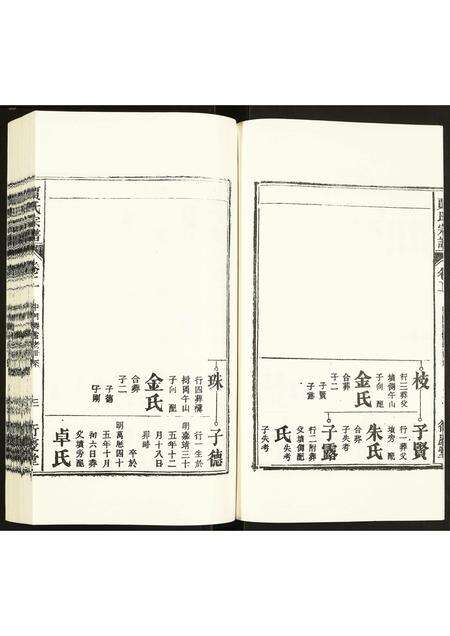 枝
行三葬父
墳側午山
子向 配
金氏
合葬
子二
子賢
子露
子賢
行一葬父
墳旁 配
朱氏
合葬
子失考
子露
行二附葬
父墳側配
氏 失考
子失考
珠
行四葬
午山
子向 配
金氏
合葬
子二
子德
子剛
子德
行一生於
明嘉靖三十
五年十二
月十八日
卒於
明萬思四十
五年十月
初六日葬
父墳旁配
卓氏
氏宗譜
卷二